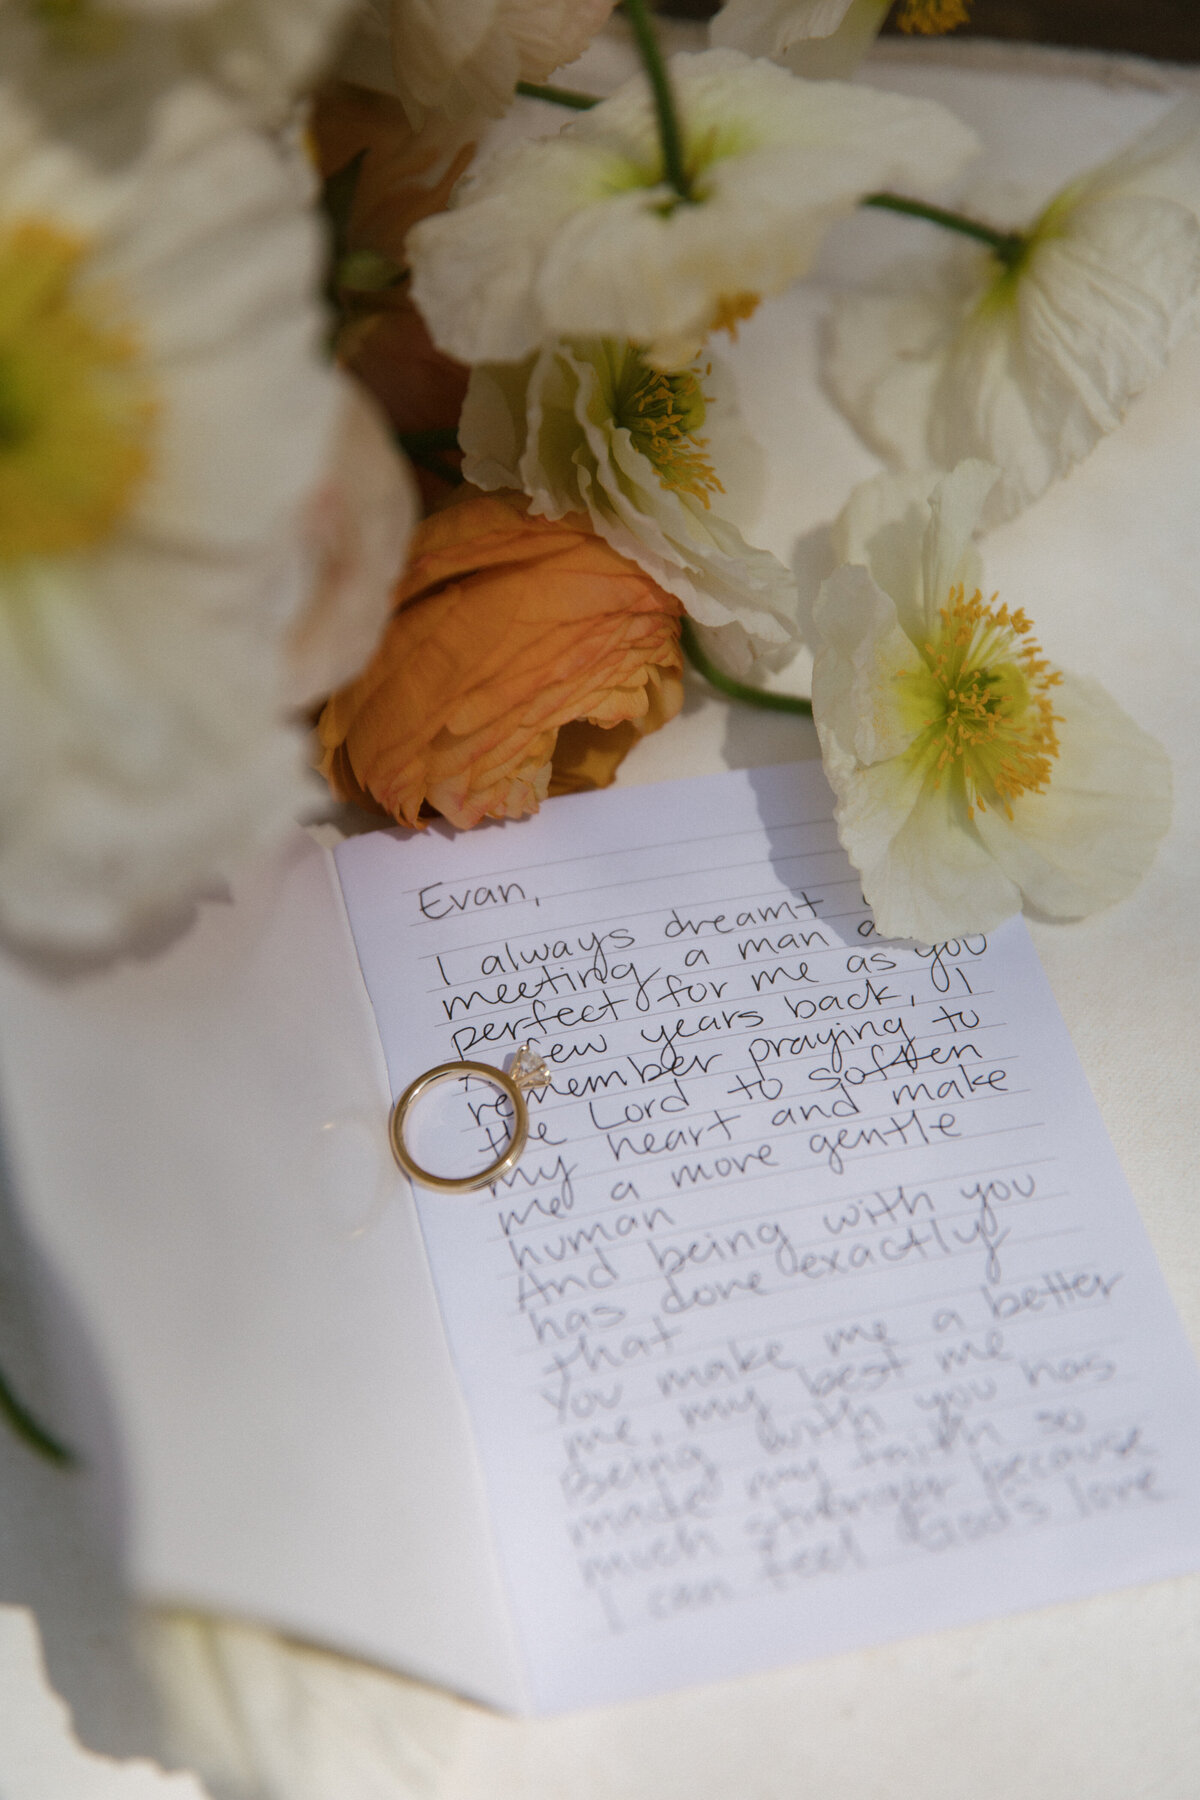 Evan,
I always dreamt
meeting a man
perfect for me as you
few years back, I
remember praying to
the Lord to soften
my heart and make
me a more gentle
human
And being with you
has done exactly
that
You make me a better
me, my best me
Being with you has
made my faith so
much stronger because
I can feel God's love